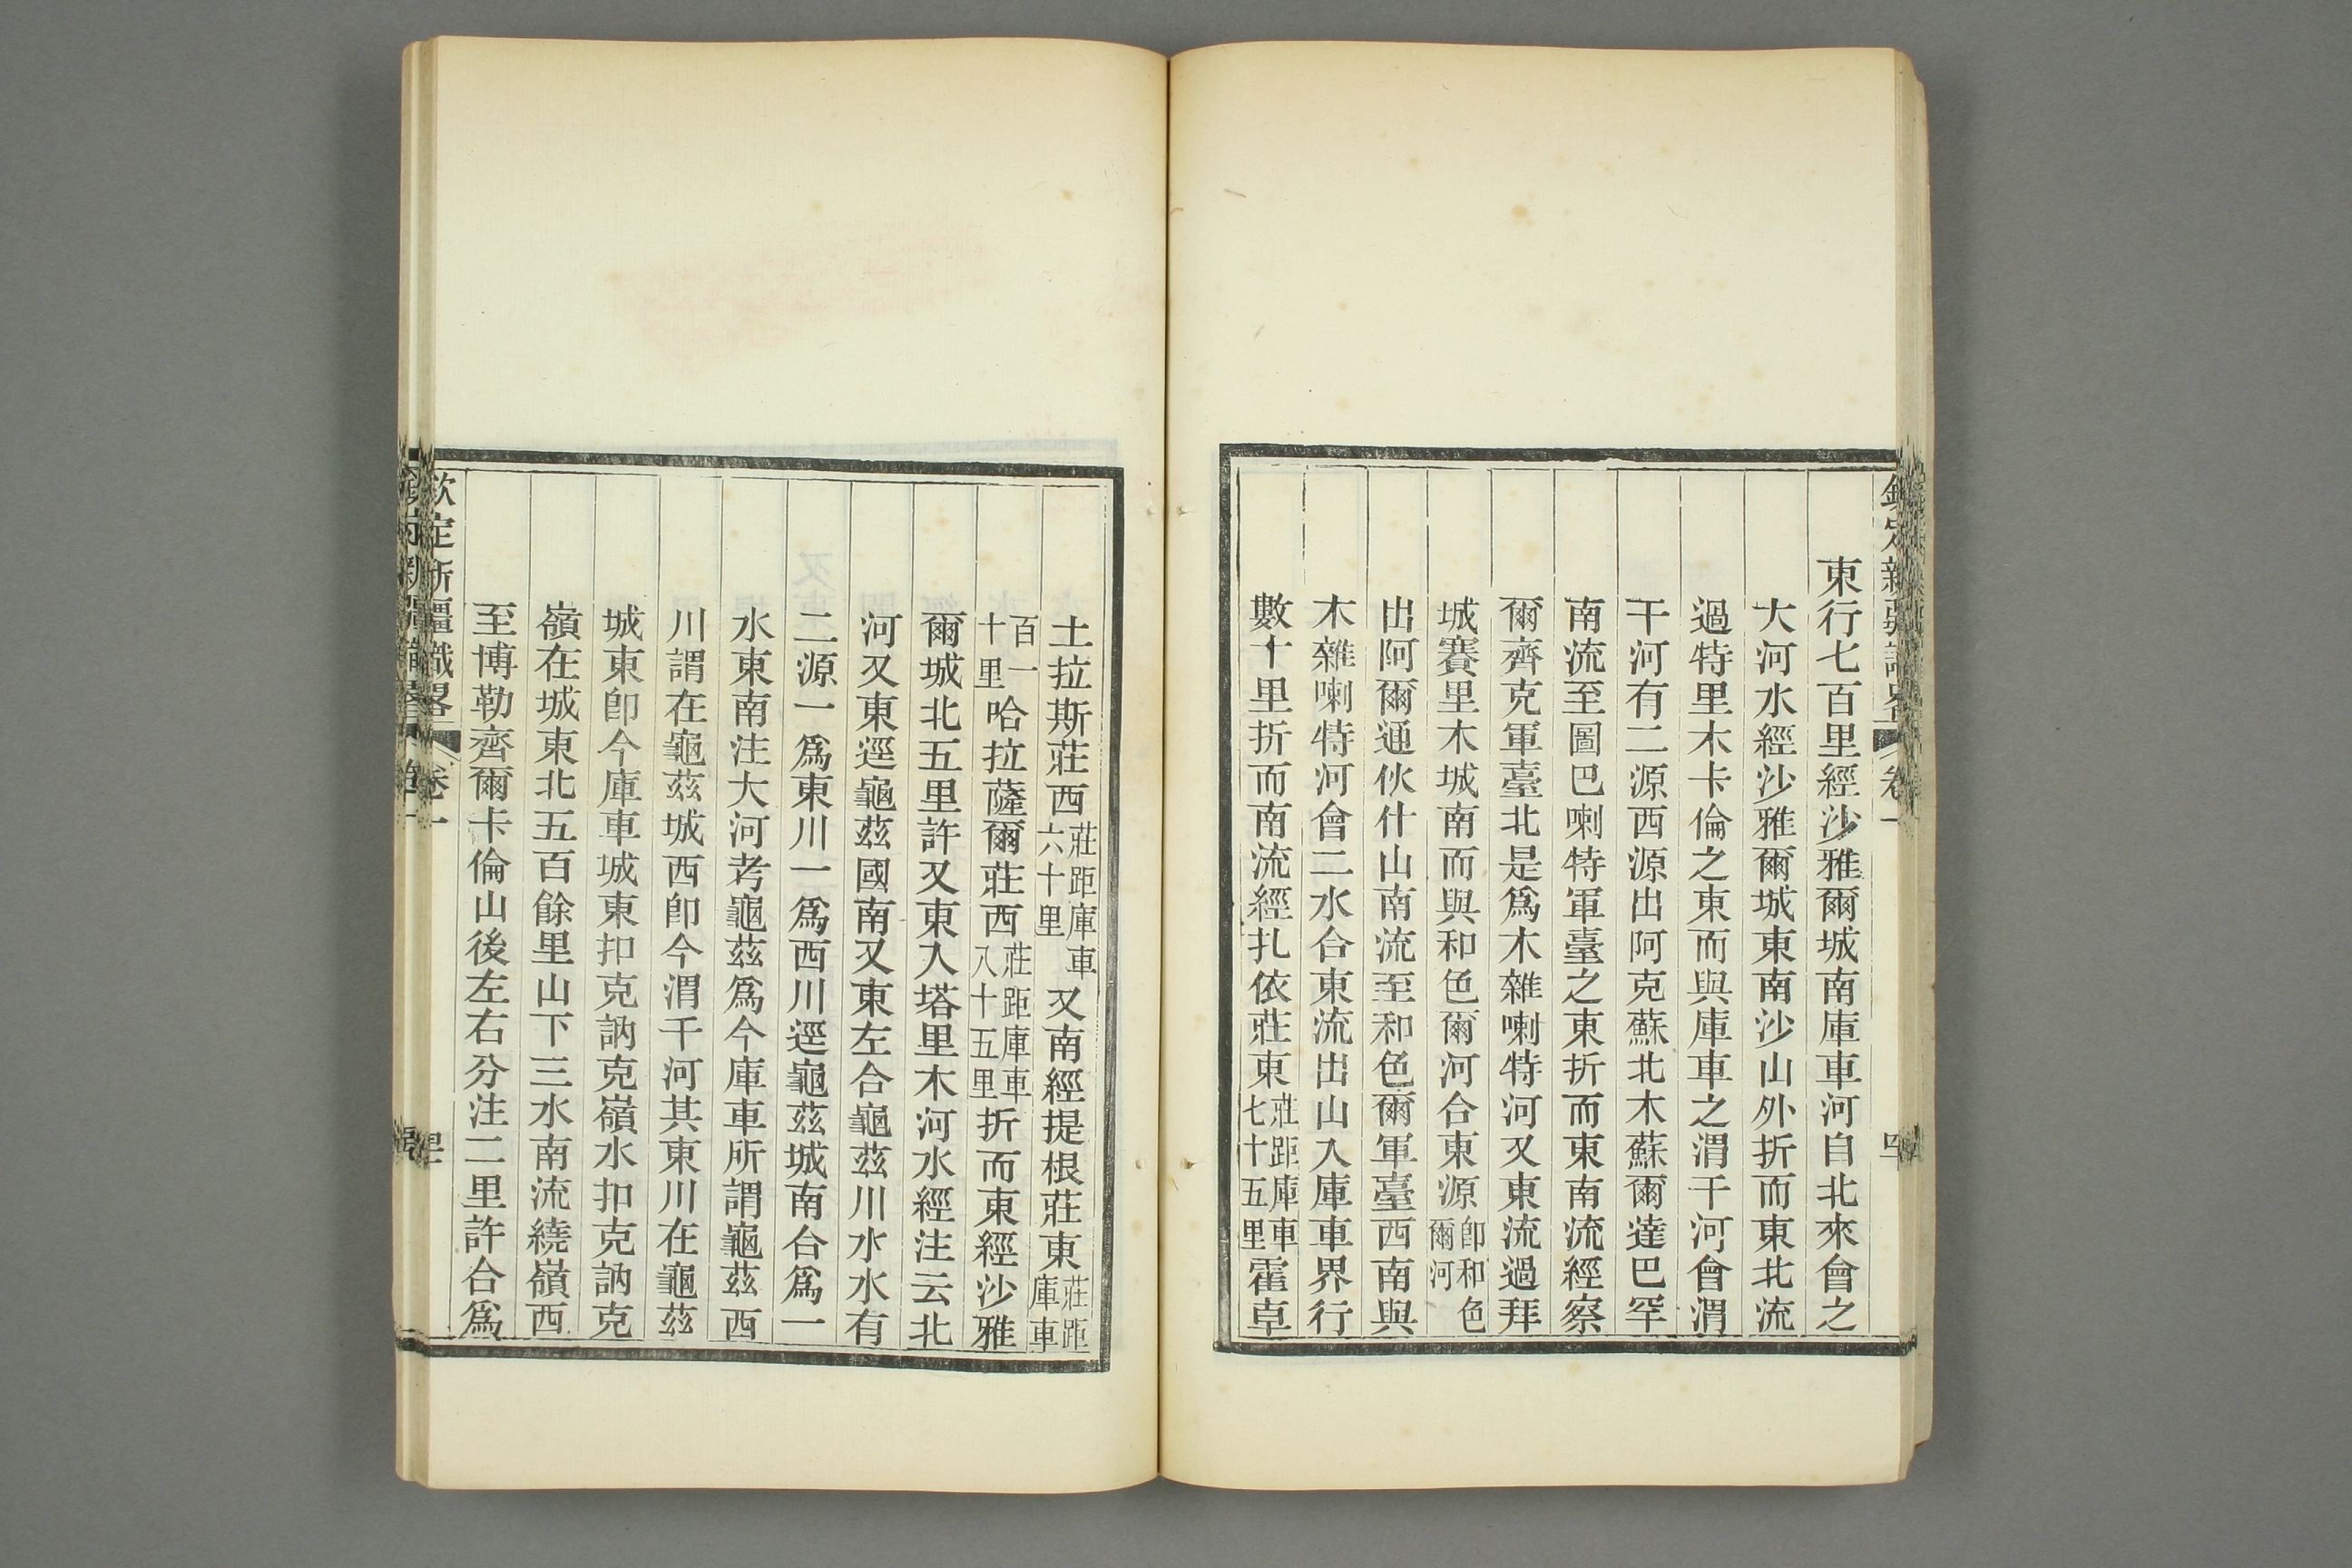 東行七百里經沙雅爾城南庫車河自北來會之
大河水經沙雅爾城東南沙山外折而東北流
過特里木卡倫之東而與庫車之渭干河會渭
干河有二源西源出阿克蘇北木蘇爾達巴罕
南流至圖巴喇特軍臺之東折而東南流經察
爾齊克軍臺北是爲木雜喇特河又東流過拜
城賽里木城南而與和色爾河合東源卽和色爾河
出阿爾通伙什山南流至和色爾軍臺西南與
木雜喇特河會二水合東流出山入庫車界行
數十里折而南流經扎依莊東莊距庫車七十五里霍卓
土拉斯莊西莊距庫車六十里又南經提根莊東莊距庫車
百一十里哈拉薩爾莊西莊距庫車八十五里折而東經沙雅
爾城北五里許又東入塔里木河水經注云北
河又東逕龜茲國南又東左合龜茲川水水有
二源一爲東川一爲西川逕龜茲城南合爲一
水東南注大河考龜茲爲今庫車所謂龜茲西
川謂在龜茲城西卽今渭干河其東川在龜茲
城東卽今庫車城東扣克訥克嶺水扣克訥克
嶺在城東北五百餘里山下三水南流繞嶺西
至博勒齊爾卡倫山後左右分注二里許合爲
欽定新疆識畧 卷一